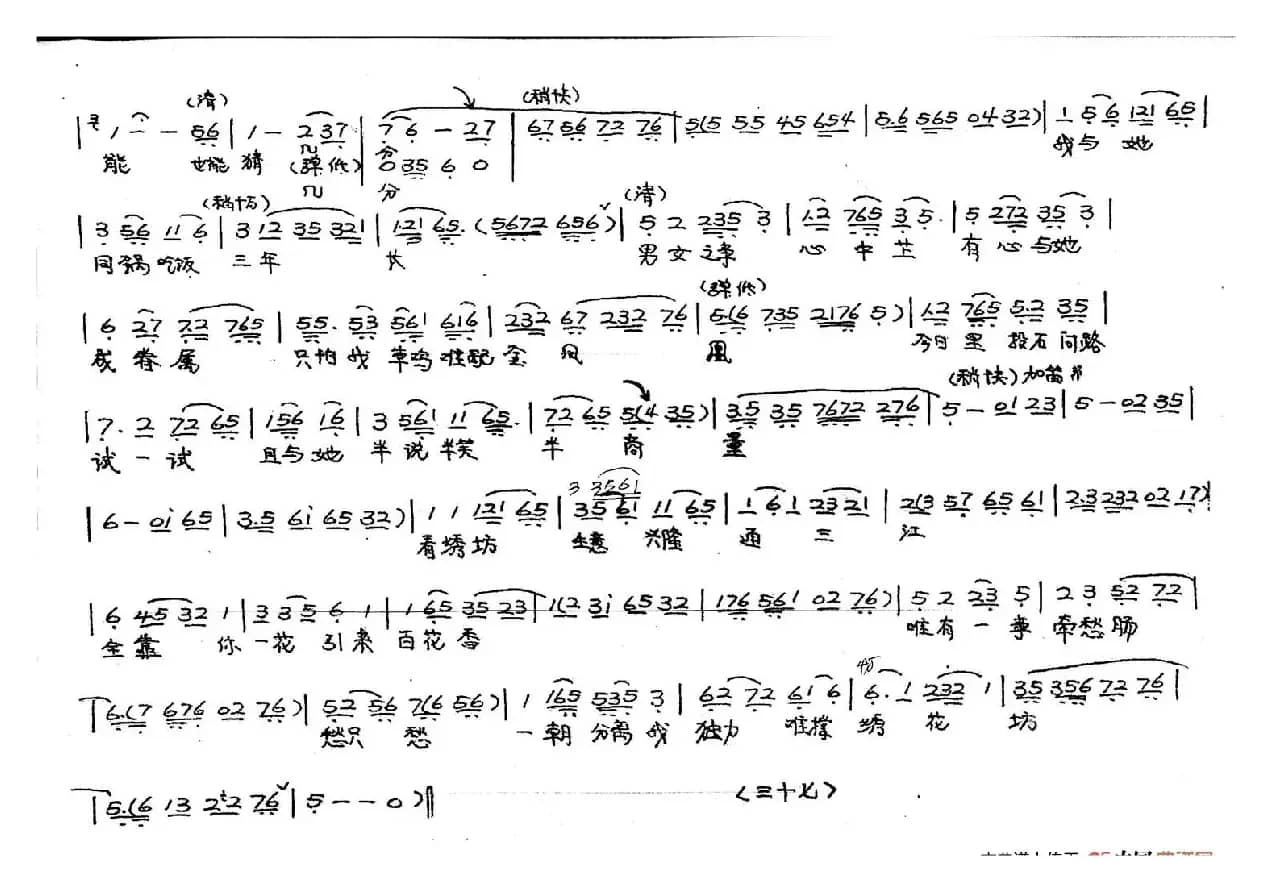 (清) (稍快)
1 - - 56 | 1 - 2 37 | 7 6 - 27 | 67 56 72 76 | 5(5 55 45 654 | 5.6 565 04 32) | 1 56 121 65 |
能 也能 猜 (弹低) 分 0 35 6 0 我与 她
分
(清)
3 56 11 6 | 3 12 35 321 | 121 65. (5672 656) | 5 2 235 3 | 12 765 3 5. | 5 272 35 3 |
同锅吃饭 三年 长 男女之事 心中 有心与她
(弹低)
6 27 72 765 | 55. 53 561 616 | 232 67 232 76 | 5.(6 735 2176 5) | 12 765 52 35 |
成眷属 只怕我 草鸡难配 金 凤 凰 今日里 投石问路
(稍快) 加笛
7. 2 72 65 | 156 16 | 3 561 11 65. | 72 65 5(4 35) | 3.5 35 7672 276 | 5 - 01 23 | 5 - 02 35 |
试一试 且与她 半说半笑 半 商 量
3 3561
6 - 0i 65 | 3.5 6i 65 32) | 1 1 121 65 | 35 61 11 65 | 1 6 1 23 21 | 2(3 57 65 61 | 2.3 232 02 17)
看绣坊 生意 兴隆 通 三 江
6 45 32 1 | 3 35 6 1 | 1 65 35 23 | 1(2 3i 65 32 | 176 561 02 76) | 5 2 23 5 | 2 3 52 72 |
全靠 你一花 引来 百花香 唯有一事 牵愁肠
6.(7 676 02 76) | 52 56 7(6 56) | 1 165 535 3 | 62 72 61 6 | 6. 1 232 1 | 35 356 72 76 |
愁只 愁 一朝 分离我 独力 难撑 绣 花 坊
5.(6 13 22 76 | 5 - - 0) ‖ (三十七)